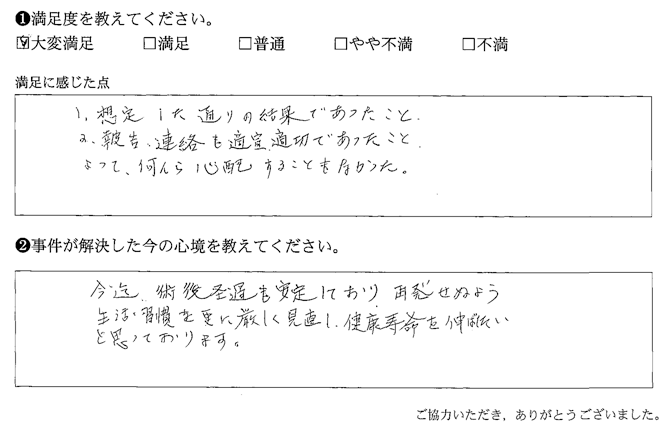 ❶満足度を教えてください。
☑大変満足 □満足 □普通 □やや不満 □不満
満足に感じた点
1. 想定した通りの結果であったこと.
2. 報告、連絡も適宜適切であったこと.
よって、何んら心配することもなかった。
❷事件が解決した今の心境を教えてください。
今迄、術後経過も安定しており、再発せぬよう
生活習慣を更に厳しく見直し、健康寿命を伸ばしたい
と思っております。
ご協力いただき、ありがとうございました。